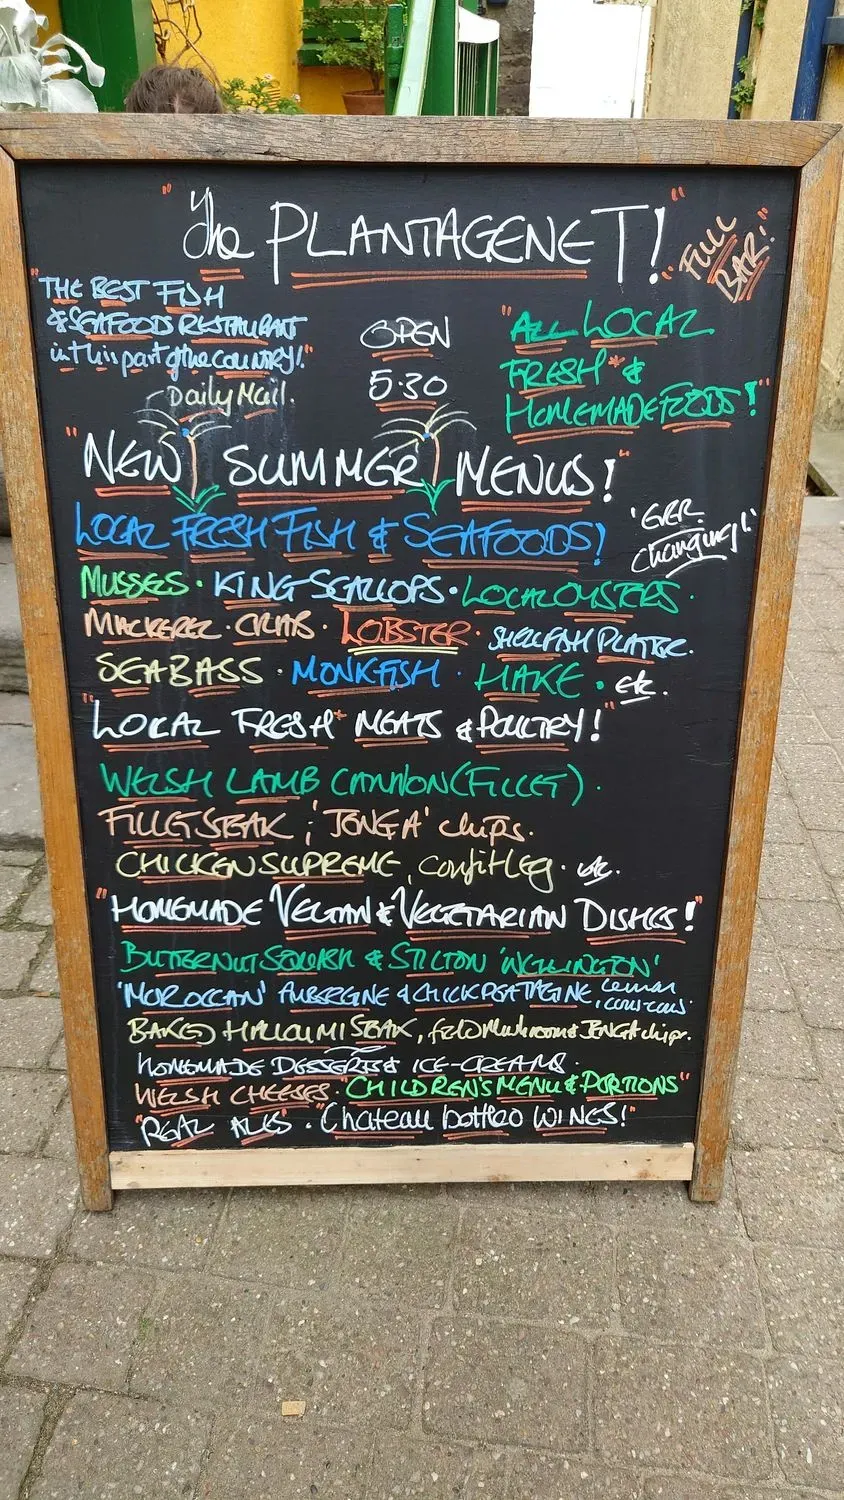 "The PLANTAGENET!"
"FULL BAR!"
"THE BEST FISH
& SEAFOODS RESTAURANT
in this part of the COUNTRY!"
Daily Mail.
OPEN
5.30
"ALL LOCAL
FRESH* &
HOMEMADE FOODS!"
"NEW SUMMER MENUS!"
LOCAL FRESH FISH & SEAFOODS!
'EVER
changing!'
MUSSELS · KING SCALLOPS · LOCAL OYSTERS ·
MACKEREL · CRAB · LOBSTER · SHELLFISH PLATTER.
SEABASS · MONKFISH · HAKE · etc.
"LOCAL FRESH* MEATS & POULTRY!"
WELSH LAMB CANNON (FILLET) ·
FILLET STEAK ; 'JENGA' chips.
CHICKEN SUPREME, confit leg · etc.
"HOMEMADE VEGAN & VEGETARIAN DISHES!"
BUTTERNUT SQUASH & STILTON 'WELLINGTON'
'MOROCCAN' AUBERGINE & CHICKPEA TAGINE, lemon cous-cous
BAKED HALLOUMI STEAK, field Mushrooms & JENGA chips.
HOMEMADE DESSERTS & ICE-CREAMS ·
WELSH CHEESES · "CHILDREN'S MENU & PORTIONS"
"REAL ALES" · "Chateau bottled WINES!"